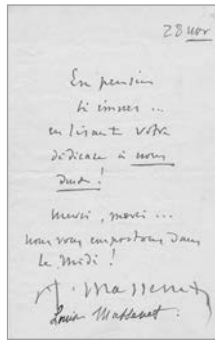 28 nov
En pensée
si émues ...
en lisant votre
dédicace à nous
deux !
Merci, merci ...
nous vous emportons dans
le midi !
J. Massenet
Louise Massenet.